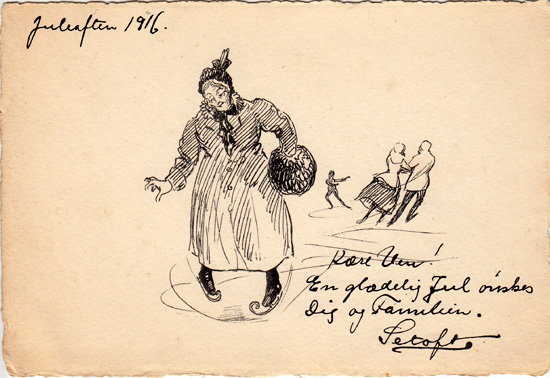 Juleaften 1916.
Kære Ven!
En glædelig Jul önskes
Dig og Familien.
Setoft